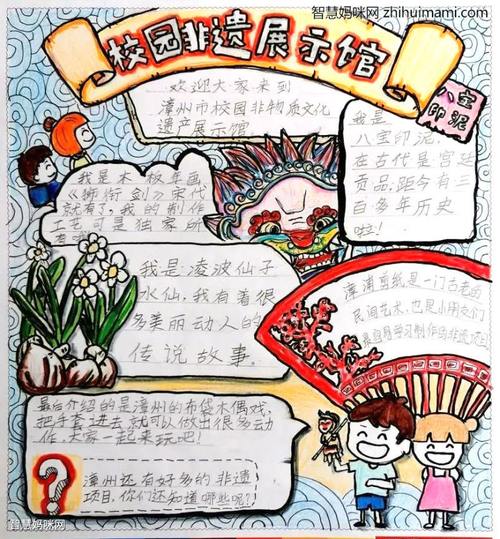 智慧妈咪网 zhihuimami.com
校园非遗展示馆
欢迎大家来到
漳州市校园非物质文化
遗产展示馆
八宝
印泥
我是
八宝印泥,
在古代是宫廷
贡品,距今有三
百多年历史
啦!
我是木板年画
《狮衔剑》宋代
就有了,我的制作
工艺可是独家所
我是凌波仙子
水仙,我有着很
多美丽动人的
传说故事.
漳浦剪纸是一门古老的
民间艺术,也是小朋友们
学习制作的非遗项目
最后介绍的是漳州的布袋木偶戏,
把手套进去就可以做出很多动
作,大家一起来玩吧!
?
漳州还有好多的非遗
项目,你们还知道哪些呢?
智慧妈咪网